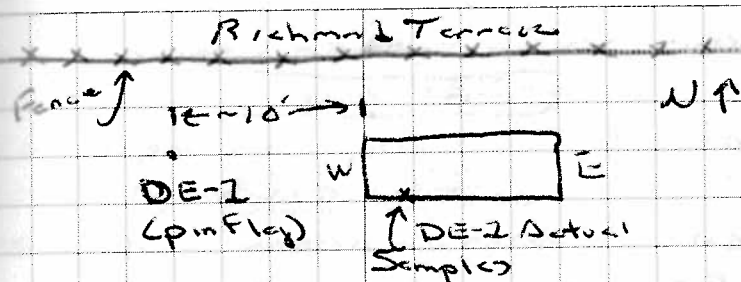 Richmond Terrace
Fence
~10'
N
W
E
DE-2
(pin flag)
DE-2 Actual
Samples